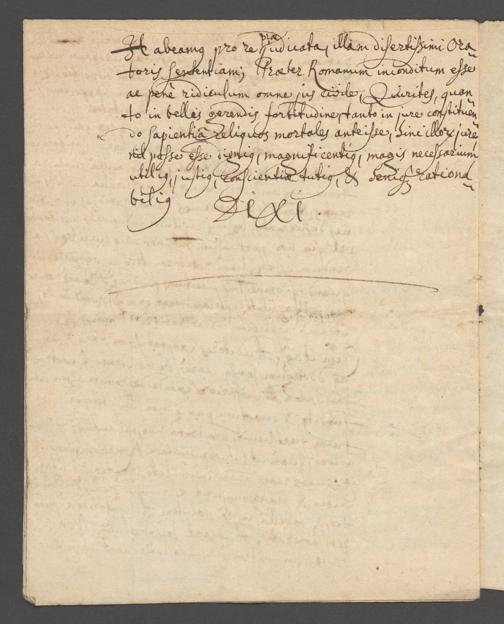 Habeamq pro re præjudicata, illam disertissimi Ora-
toris sententiam; Præter Romanum inconditum esse
ac penè ridiculum omne jus civile, Quirites, quan-
to in bellis gerendis fortitudine, tanto in jure constituen-
do sapientiâ reliquos mortales anteisse, Juri illorū jure
nil posse esse dignig, magnificentig, magis necessarium
utilig, justig, conscientiæ tutig, & deniq rationa-
bilig
Dixi.